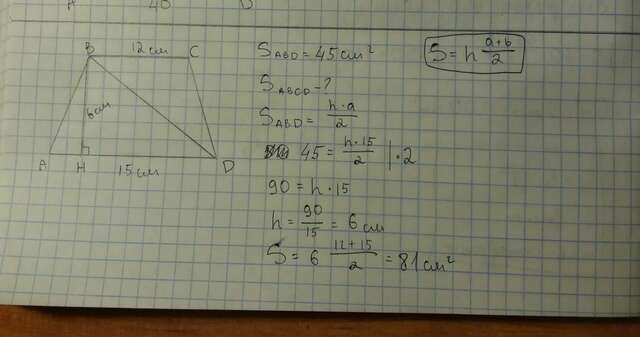 A 40 D
B 12 см C
6 см
A H 15 см D
S_ABD = 45 см²
S_ABCD - ?
S_ABD = h·a/2
45 = h·15/2 | ·2
90 = h·15
h = 90/15 = 6 см
S = 6 12+15/2 = 81 см²
S = h a+b/2